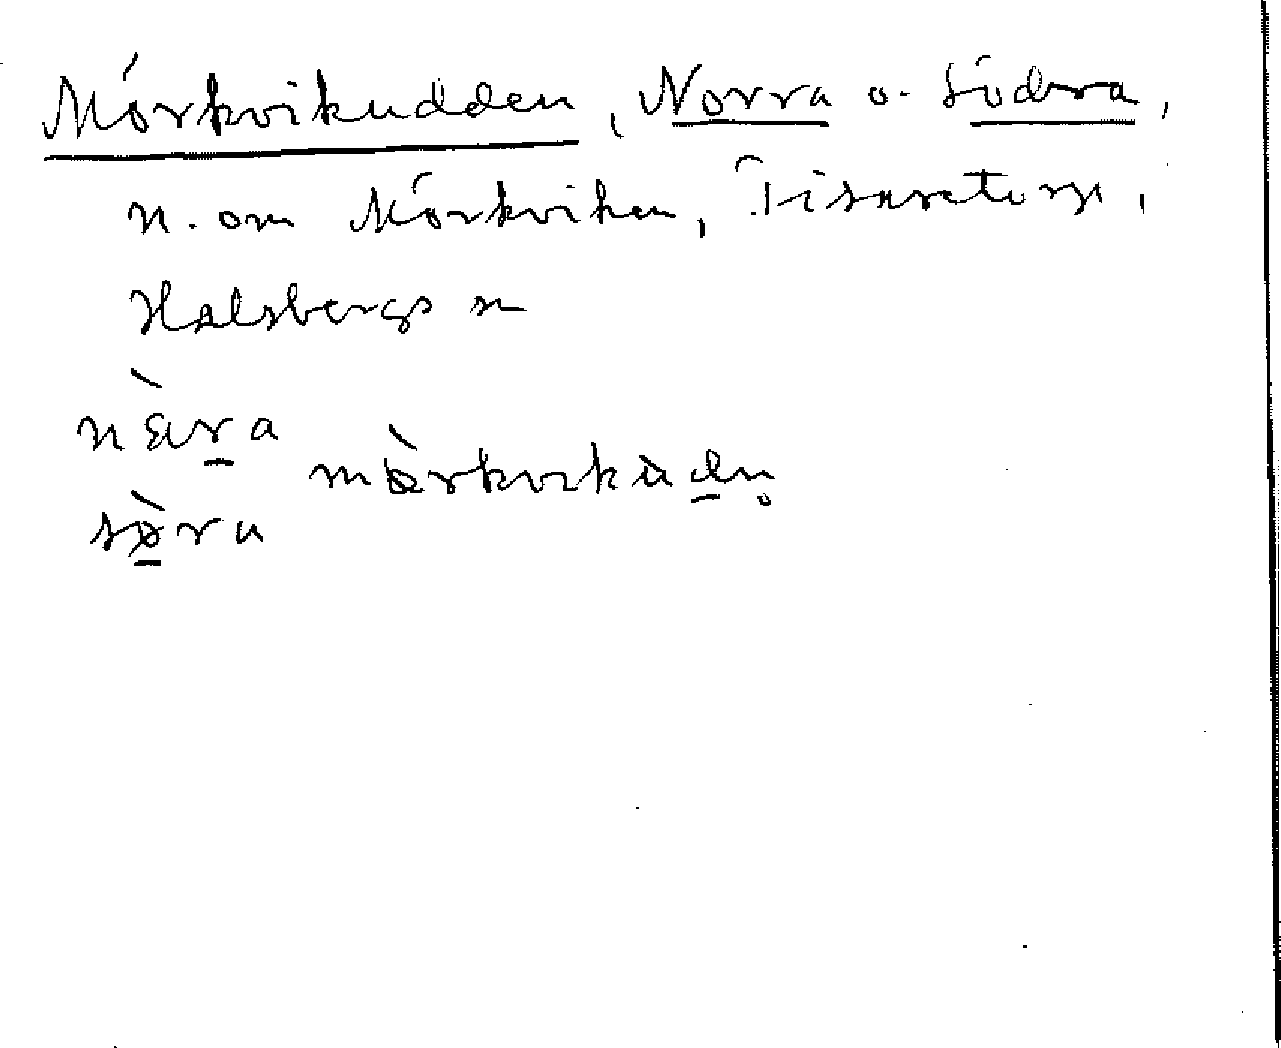 Mörkvikudden, Norra o. Södra,
n. om Mörkviken, Tisaretorp,
Halsbergs sn
nὲra
mørkvikàdn̥
sø̀ra